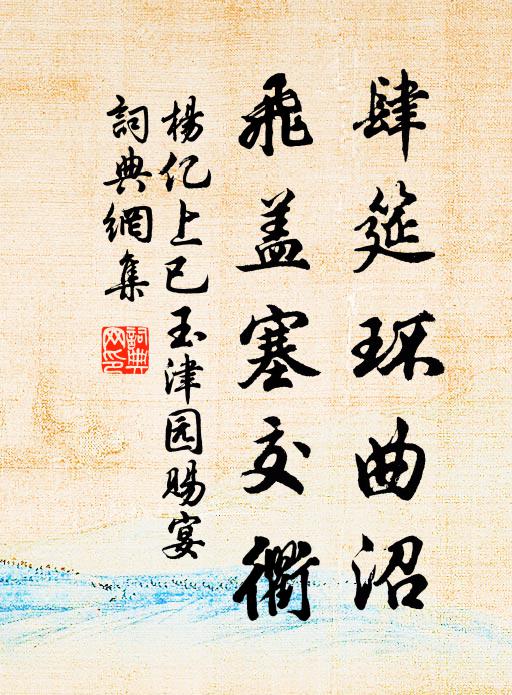 肆筵环曲沼
飛盖塞交衢
杨亿上巳玉津园赐宴
詞典網集
詞典网印